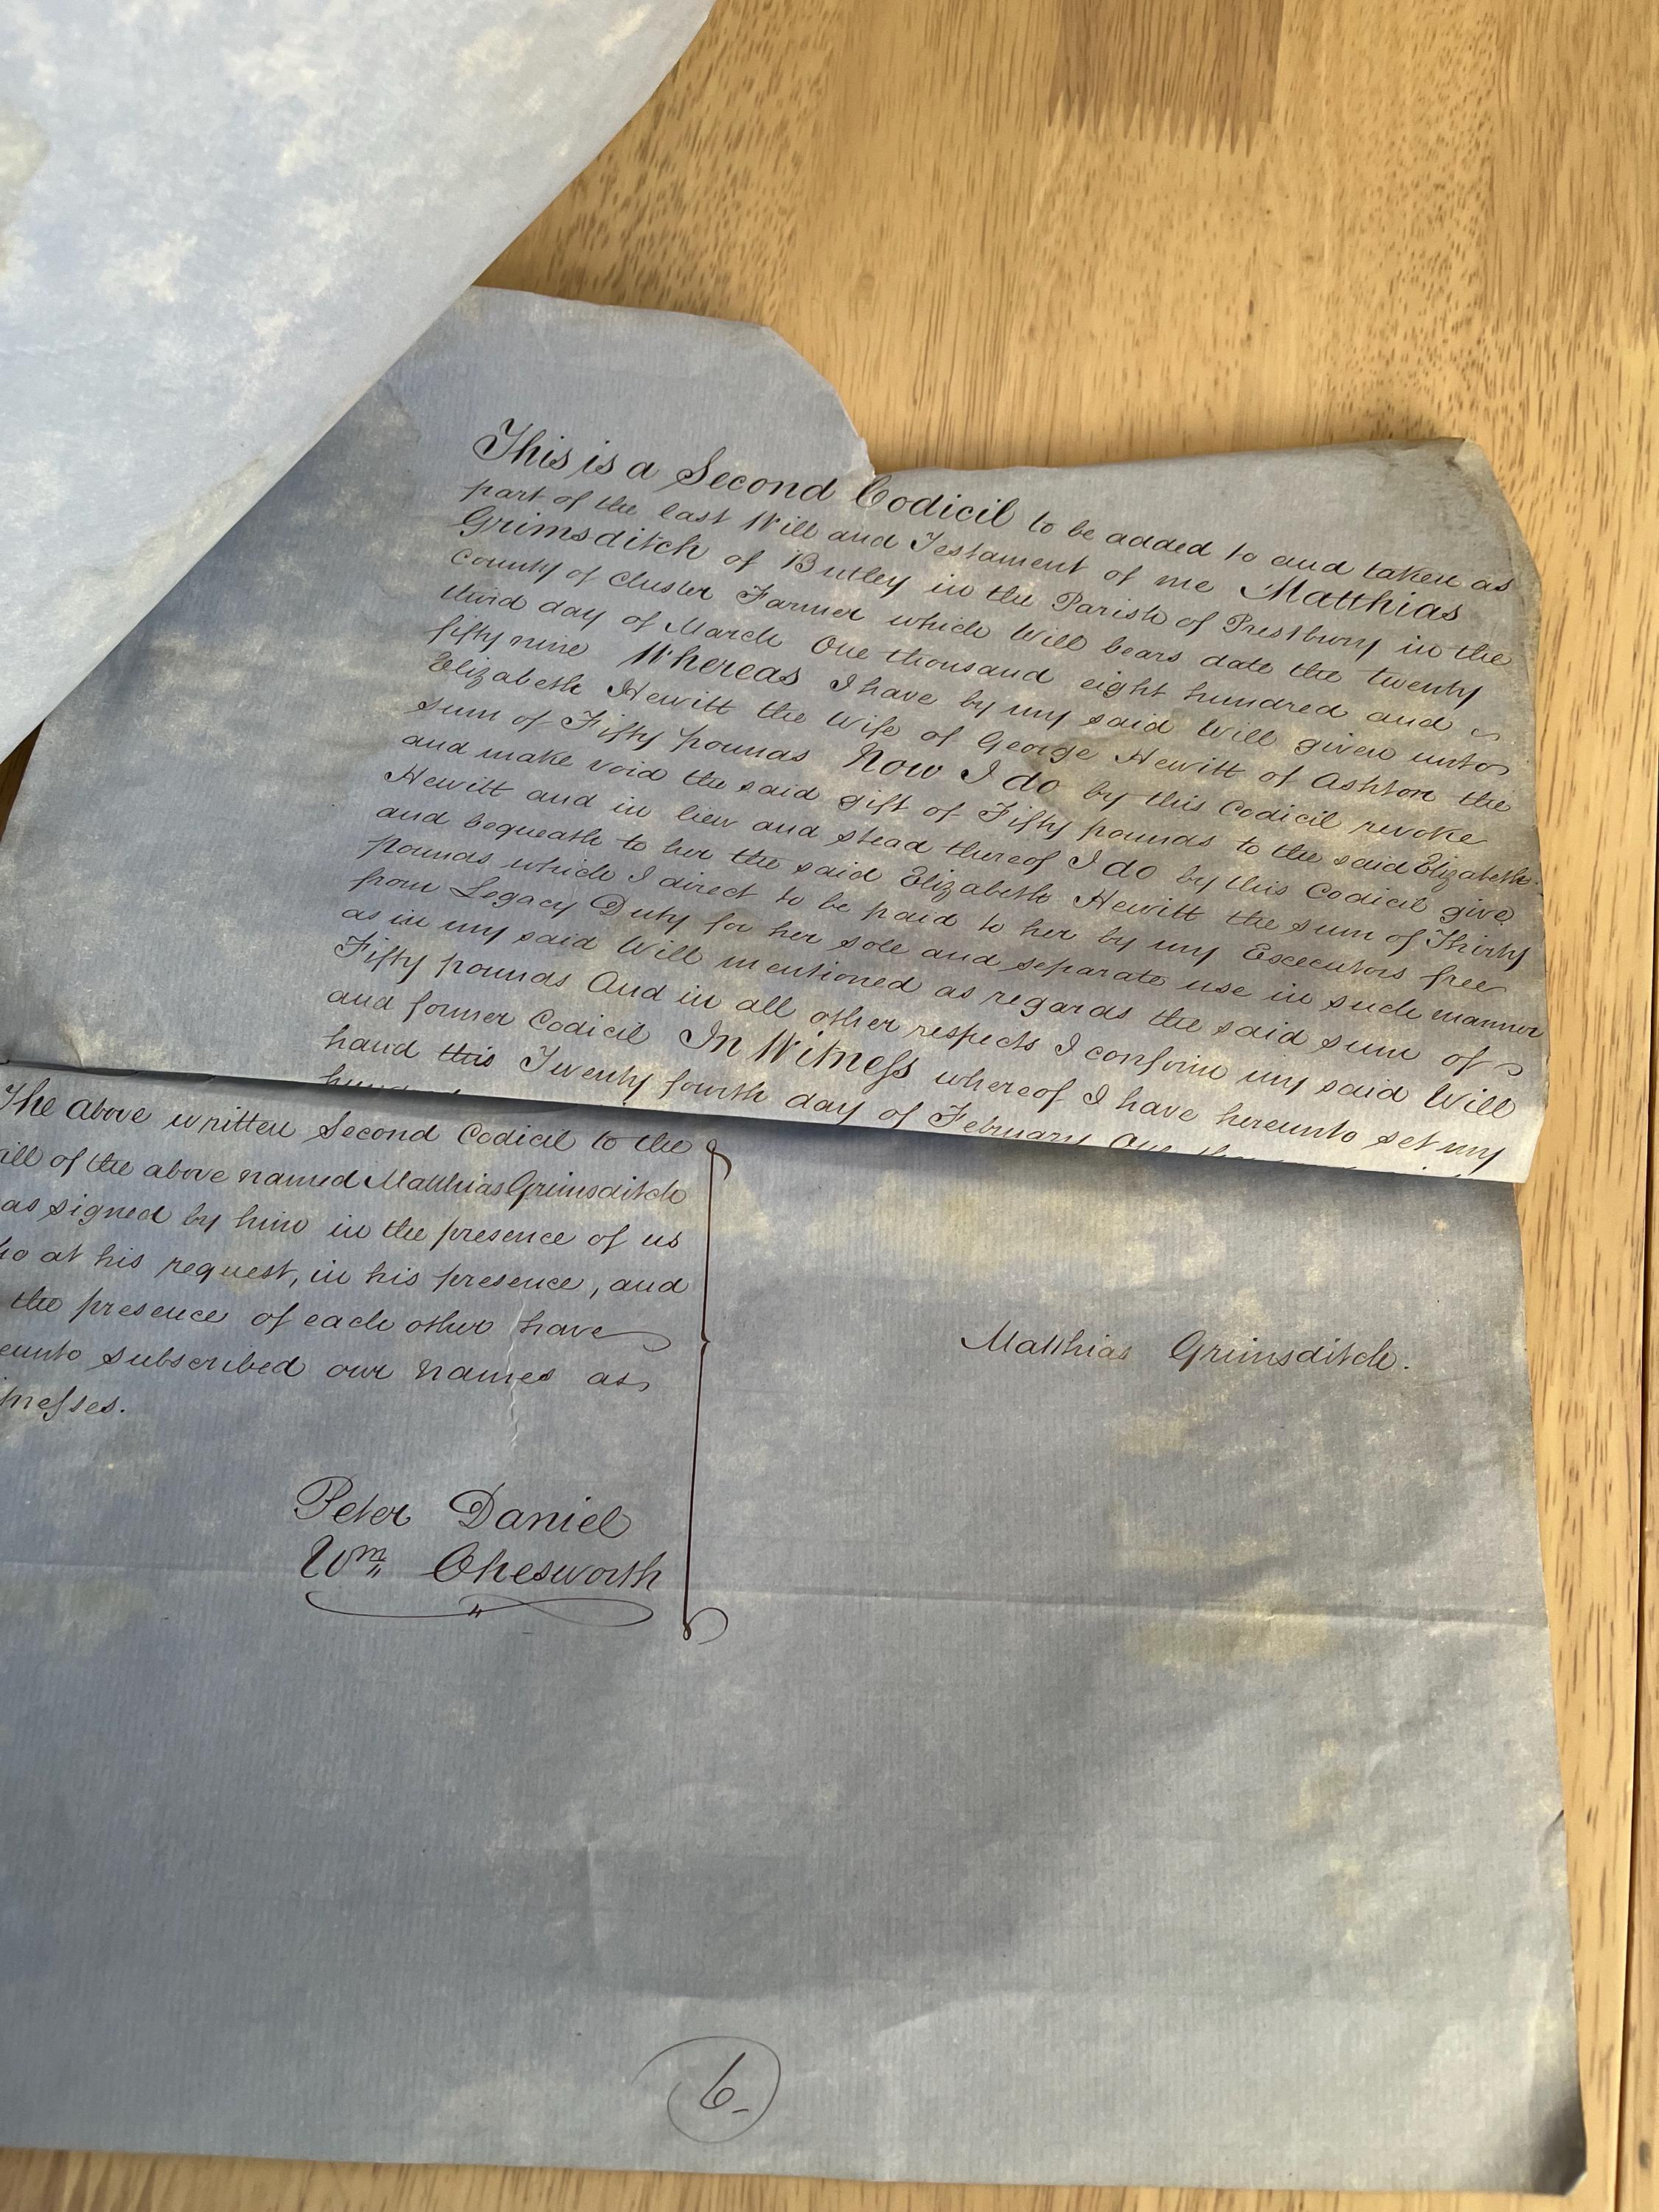 This is a Second Codicil to be added to and taken as
part of the last Will and Testament of me Matthias
Grimsditch of Butley in the Parish of Prestbury in the
County of Chester Farmer which Will bears date the twenty
third day of March One thousand eight hundred and
fifty nine Whereas I have by my said Will given unto
Elizabeth Hewitt the Wife of George Hewitt of Ashton the
sum of Fifty pounds Now I do by this Codicil revoke
and make void the said gift of Fifty pounds to the said Elizabeth
Hewitt and in lieu and stead thereof I do by this Codicil give
and bequeath to her the said Elizabeth Hewitt the sum of Thirty
pounds which I direct to be paid to her by my Executors free
from Legacy Duty for her sole and separate use in such manner
as in my said Will mentioned as regards the said sum of
Fifty pounds And in all other respects I confirm my said Will
and former Codicil In Witness whereof I have hereunto set my
hand this Twenty fourth day of February One
The above written Second Codicil to the
ill of the above named Matthias Grimsditch
as signed by him in the presence of us
ho at his request, in his presence, and
the presence of each other have
eunto subscribed our names as
tnesses.
Matthias Grimsditch.
Peter Daniel
Wm Chesworth
6